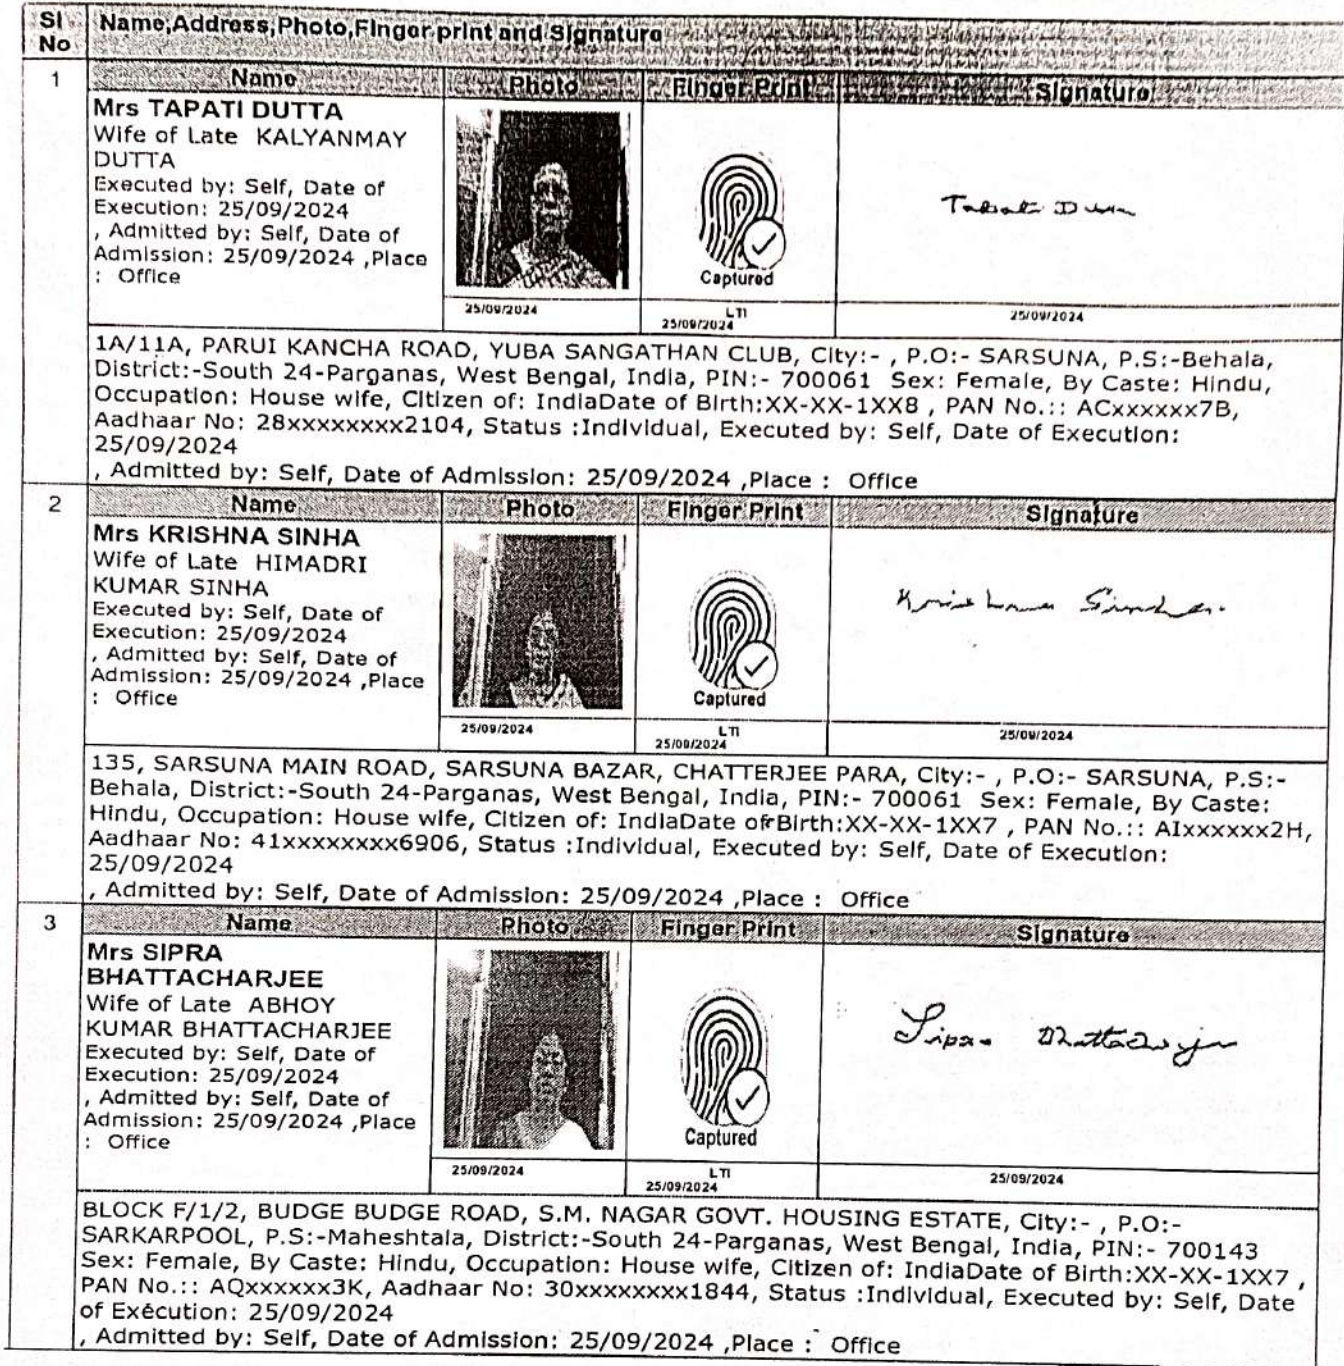 Sl No Name,Address,Photo,Finger print and Signature
1 Name Photo Finger Print Signature
Mrs TAPATI DUTTA
Wife of Late KALYANMAY
DUTTA
Executed by: Self, Date of
Execution: 25/09/2024
, Admitted by: Self, Date of
Admission: 25/09/2024 ,Place
: Office
Captured
Tapati Dutta
25/09/2024 LTI 25/09/2024 25/09/2024
1A/11A, PARUI KANCHA ROAD, YUBA SANGATHAN CLUB, City:- , P.O:- SARSUNA, P.S:-Behala,
District:-South 24-Parganas, West Bengal, India, PIN:- 700061 Sex: Female, By Caste: Hindu,
Occupation: House wife, Citizen of: IndiaDate of Birth:XX-XX-1XX8 , PAN No.:: ACxxxxxx7B,
Aadhaar No: 28xxxxxxxx2104, Status :Individual, Executed by: Self, Date of Execution:
25/09/2024
, Admitted by: Self, Date of Admission: 25/09/2024 ,Place : Office
2 Name Photo Finger Print Signature
Mrs KRISHNA SINHA
Wife of Late HIMADRI
KUMAR SINHA
Executed by: Self, Date of
Execution: 25/09/2024
, Admitted by: Self, Date of
Admission: 25/09/2024 ,Place
: Office
Captured
Krishna Sinha.
25/09/2024 LTI 25/09/2024 25/09/2024
135, SARSUNA MAIN ROAD, SARSUNA BAZAR, CHATTERJEE PARA, City:- , P.O:- SARSUNA, P.S:-
Behala, District:-South 24-Parganas, West Bengal, India, PIN:- 700061 Sex: Female, By Caste:
Hindu, Occupation: House wife, Citizen of: IndiaDate of Birth:XX-XX-1XX7 , PAN No.:: AIxxxxxx2H,
Aadhaar No: 41xxxxxxxx6906, Status :Individual, Executed by: Self, Date of Execution:
25/09/2024
, Admitted by: Self, Date of Admission: 25/09/2024 ,Place : Office
3 Name Photo Finger Print Signature
Mrs SIPRA
BHATTACHARJEE
Wife of Late ABHOY
KUMAR BHATTACHARJEE
Executed by: Self, Date of
Execution: 25/09/2024
, Admitted by: Self, Date of
Admission: 25/09/2024 ,Place
: Office
Captured
Sipra Bhattacharjee
25/09/2024 LTI 25/09/2024 25/09/2024
BLOCK F/1/2, BUDGE BUDGE ROAD, S.M. NAGAR GOVT. HOUSING ESTATE, City:- , P.O:-
SARKARPOOL, P.S:-Maheshtala, District:-South 24-Parganas, West Bengal, India, PIN:- 700143
Sex: Female, By Caste: Hindu, Occupation: House wife, Citizen of: IndiaDate of Birth:XX-XX-1XX7 ,
PAN No.:: AQxxxxxx3K, Aadhaar No: 30xxxxxxxx1844, Status :Individual, Executed by: Self, Date
of Execution: 25/09/2024
, Admitted by: Self, Date of Admission: 25/09/2024 ,Place : Office